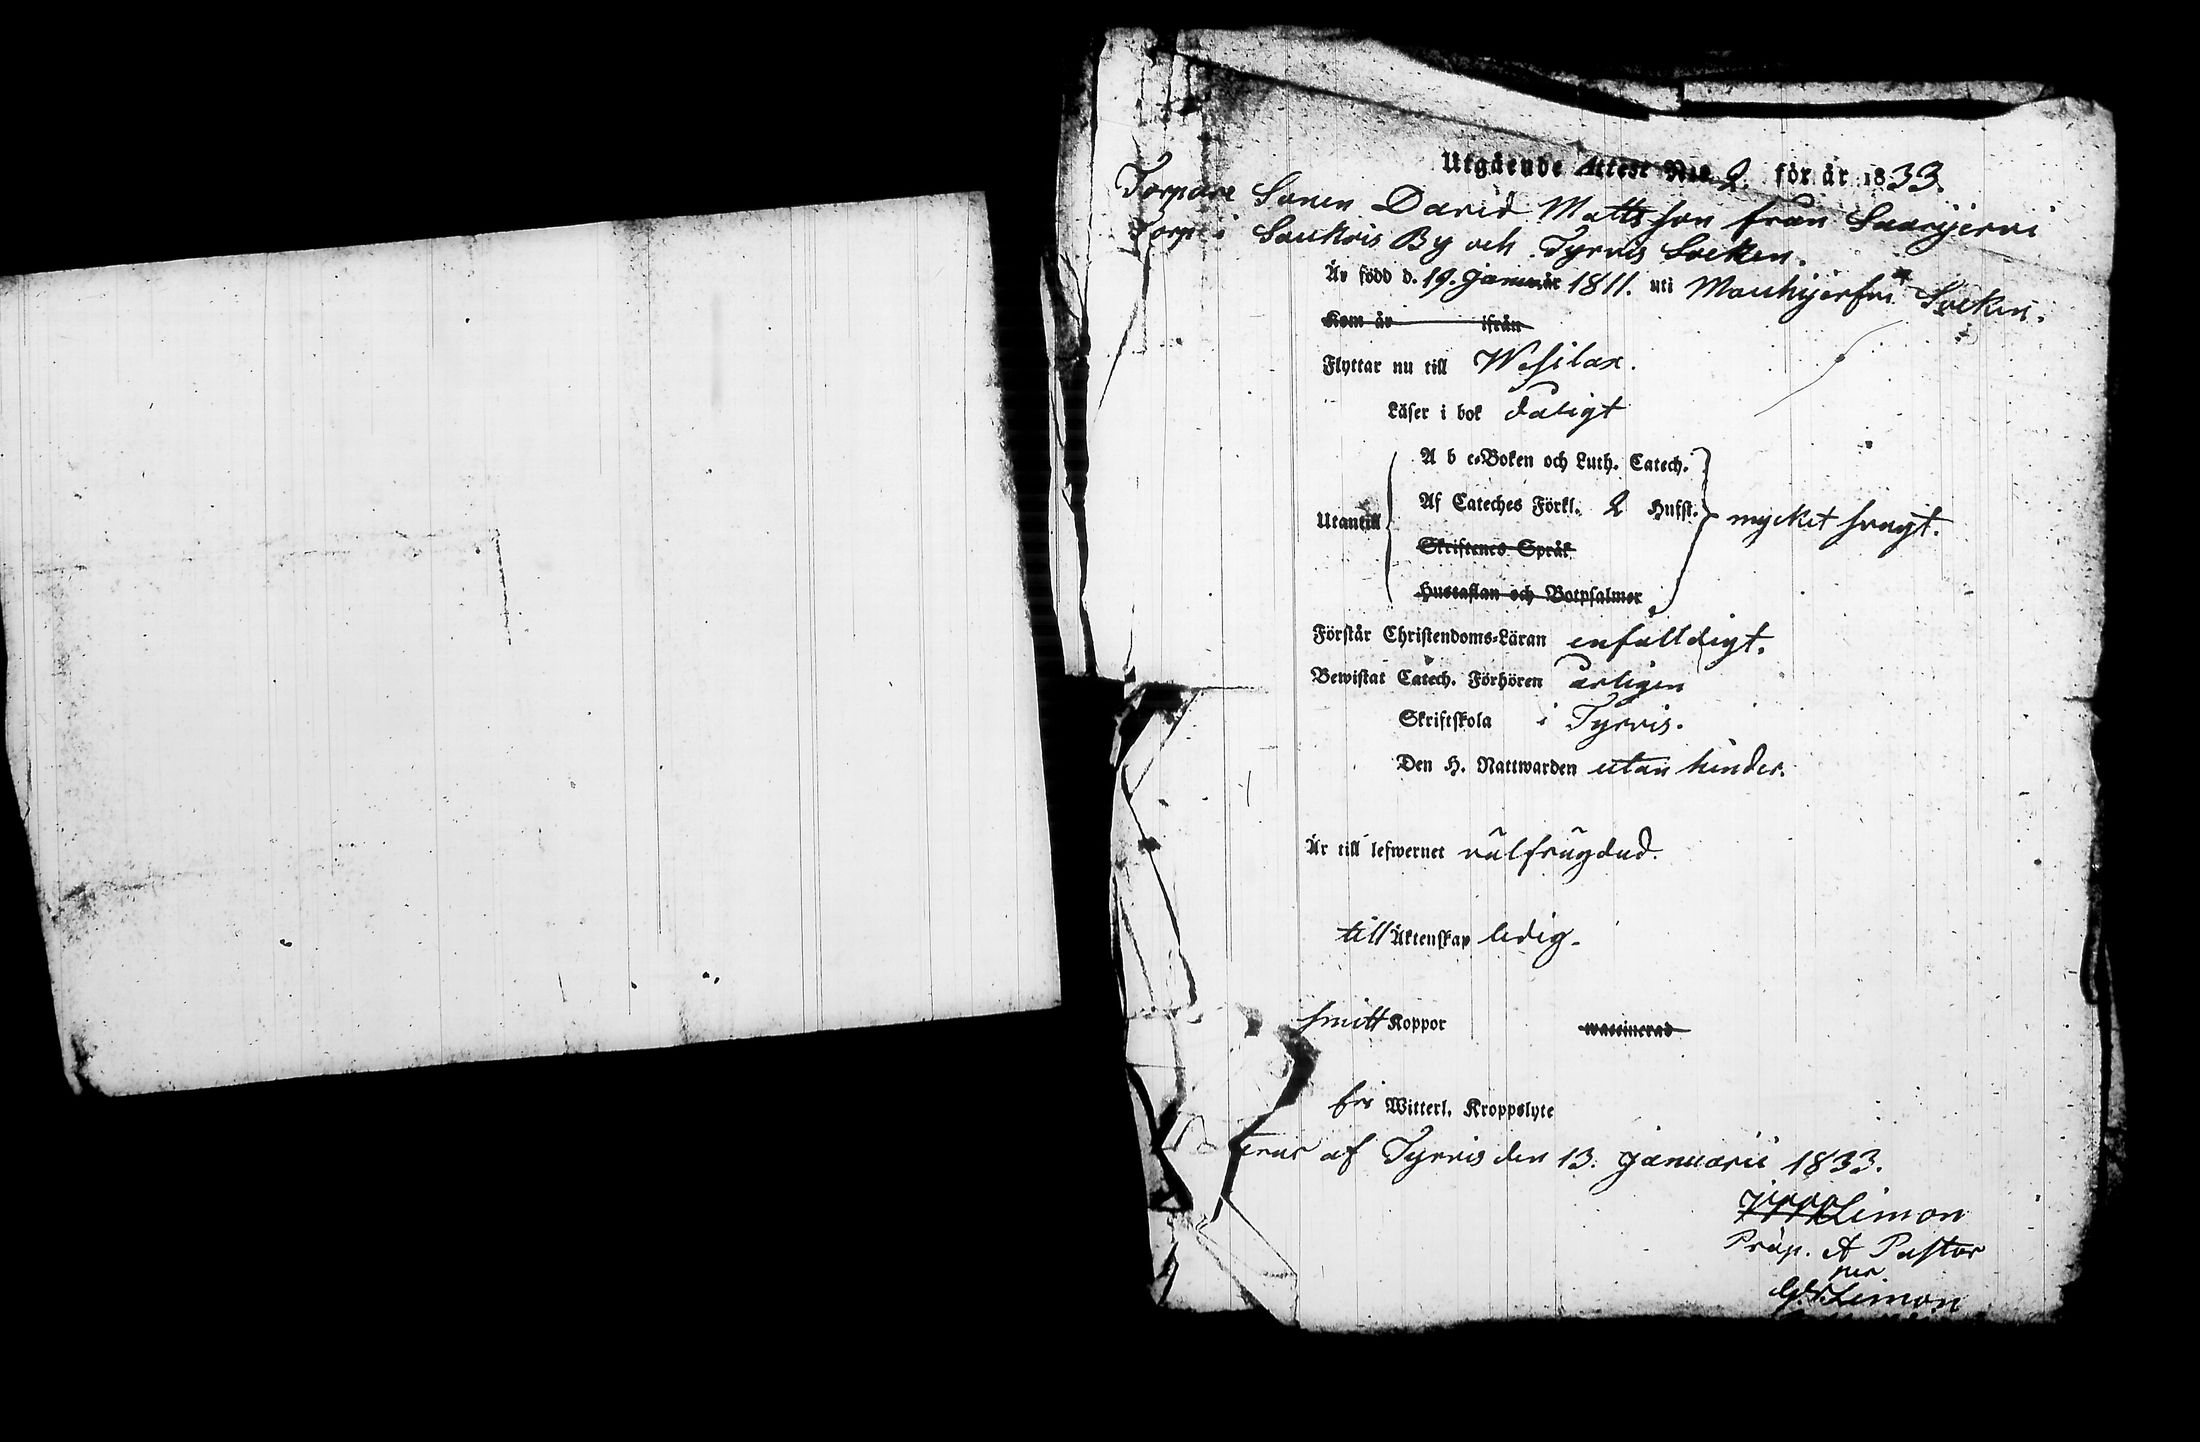 Utgående Attest N:o 2. för år 1833.
Torpare Sonen David Mattsson från Saarijervi
Torp i Soukois By och Tyrvis Socken.
Är född d. 19. Januār 1811. uti Mouhijerfvi Socken.
Kom år ifrån
Flyttar nu till Wesilax.
Läser i bok dåligt
A b c-Boken och Luth. Catech.
Af Cateches Förkl. 2 Hufst.
Utantill mycket svagt.
Skriftenes Språk
Hustaflan och Botpsalmer
Förstår Christendoms-Läran enfalldigt.
Bewistat Catech. Förhören årligen
Skriftskola i Tyrvis.
Den H. Nattwarden utan hinder.
Är till lefwernet välfrägdad.
till Äktenskap ledig.
haft Koppor waccinerad
fri Witterl. Kroppslyte
af Tyrvis den 13. Januarii 1833.
Limon
Præp. & Pastor
per
G. S. Limon